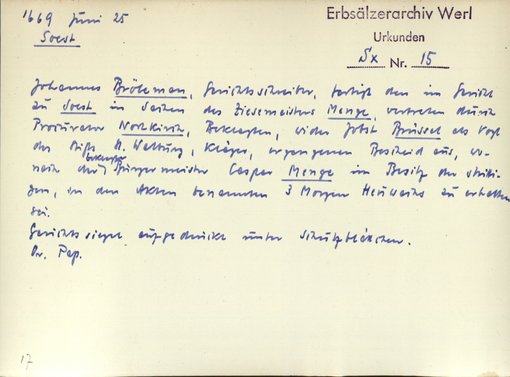 1669 Juni 25
Soest
Erbsälzerarchiv Werl
Urkunden
Sx Nr. 15
Johannes Brökeman, Gerichtsschreiber, fertigt den im Gericht
zu Soest in Sachen des Ziesemeisters Menge, vertreten durch
Procurator Norkirch, Beklagten, wider Jobst Brüssel als Vogt
des Stifts St. Walburg, Kläger, ergangenen Bescheid aus, wo-
nach der Bürgermeister Caspar Menge im Besitz der stritti-
gen, in den Akten benannten 3 Morgen Heuwachs zu erhalten
sei.
Gerichtssiegel aufgedrückt unter Schutzblättchen.
Or. Pap.
17